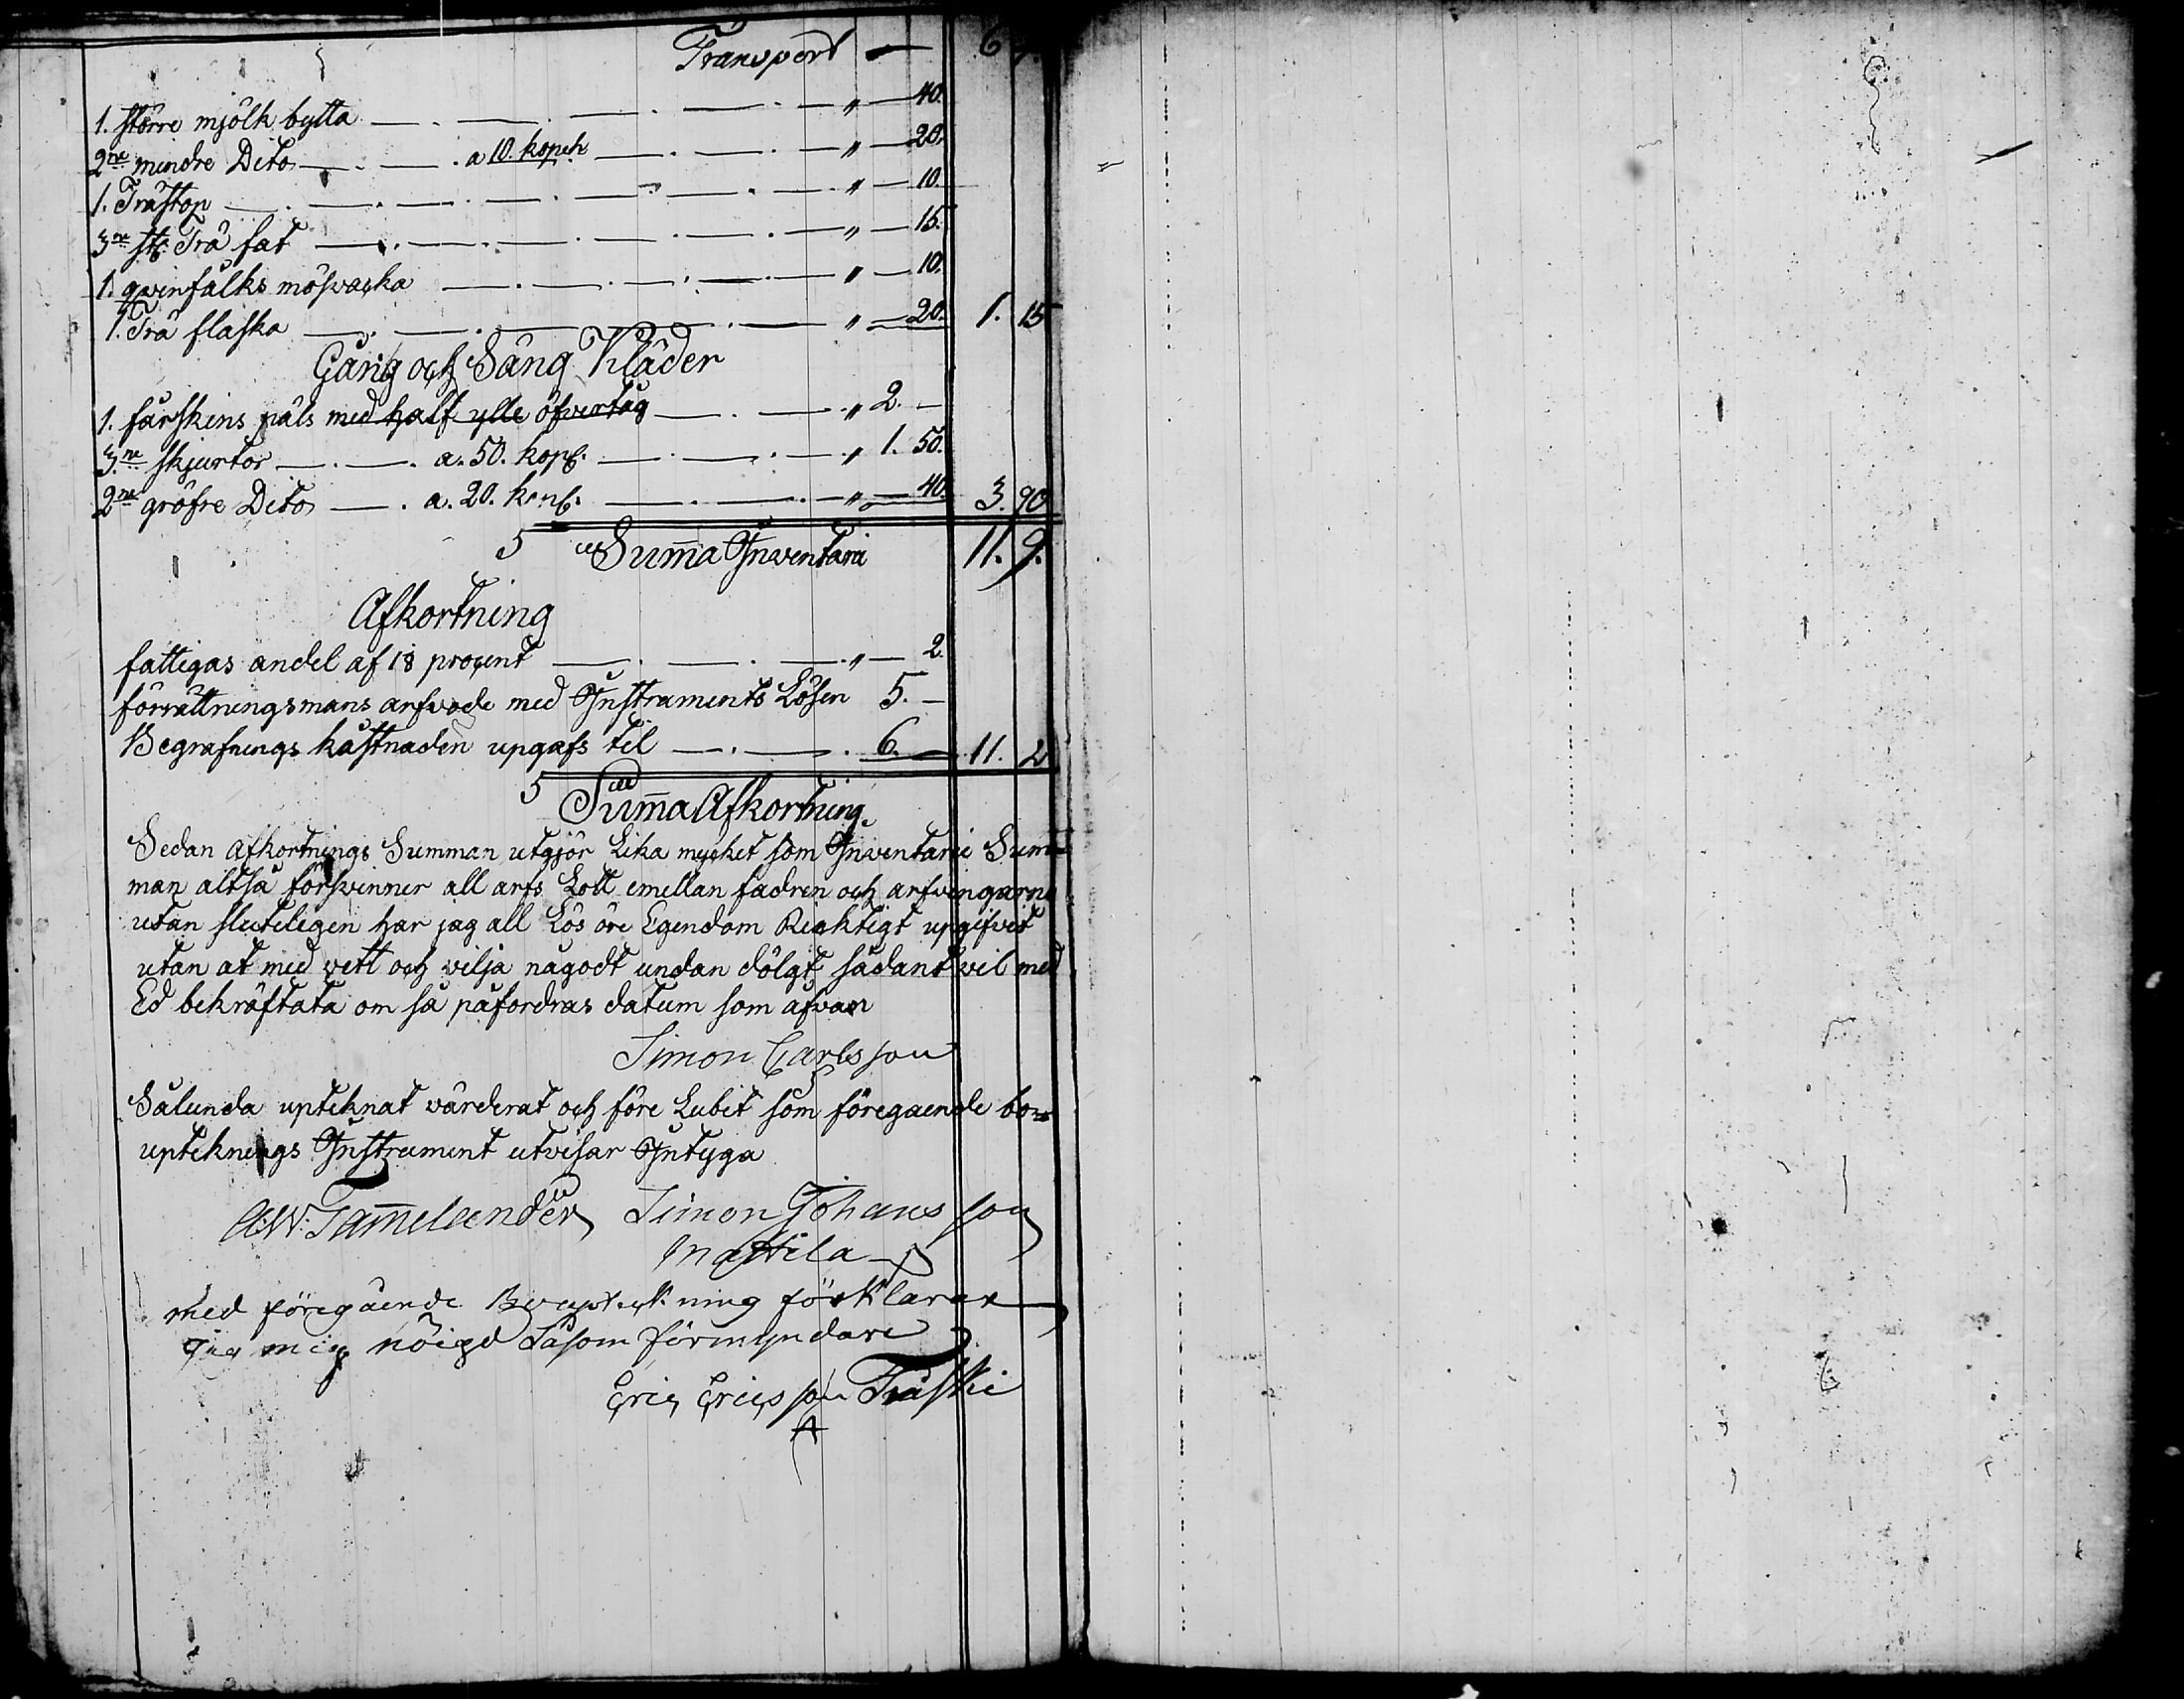 Transport — 6
1. större mjölk bytta — . — . — " — 40.
2ne mindre Dito — . — . a 10. kopek — . — . — " — 20.
1. Trästop — . — . — . — . — " — 10.
3ne st: Trä fat — . — . — . — . — " — 15.
1. qvinfålks mösvaska — . — . — . — " — 10.
1. Trä flaska — . — . — . — " — 20. 1. 15
Gång och Säng Kläder
1. fårskins päls med half ylle öfvertåg — . — . " 2. —
3ne skjurtor — . — . a. 50. kop: — . — . — " 1. 50.
2ne gröfre Dito — . a. 20. kop: — . — . — " — 40. 3. 90
Summa Inventarii 11. 9.
Afkortning
fattigas andel af 18 procent — . — . — . " — 2.
förrättningsmans arfvode med Instraments Lösen 5. —
Begrafnings kåstnaden upgafs til — . — . 6. — 11. 2
Summa Afkortning.
Sedan Afkortnings Summan utgjör Lika mycket som Inventarie Sum=
man altså försvinner all arfs Lott emellan fadren och arfvingarne
utan sluteligen har jag all Lös öre Egendom Ricktigt upgifvit
utan at med vett och vilja någodt undan dölgt sådant vil med
Ed bekräftata om så påfordras datum som åfvan
Simon Carlsson
Sålunda upteknat värderat och före Lubit som föregaende bo=
upteknings Instrument utvisar Intyga
A:W: Tammelander Simon Johansson
Mattila
med föregående Boupteckning förklarar
Jag mig nöigd Såsom förmyndare
Eric Ericsson Träski